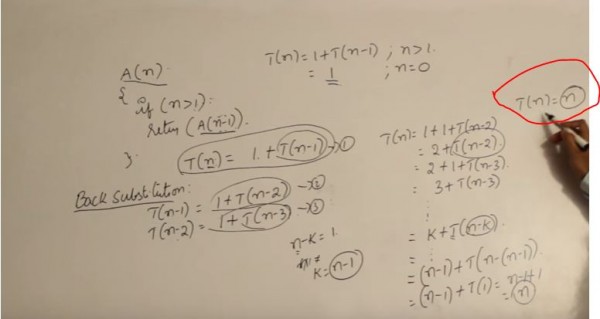 A(n)
{
if (n>1):
return (A(n-1))
}
T(n) = 1+T(n-1) ; n>1.
= 1 ; n=0
T(n) = 1 + T(n-1) → ①
Back substitution:
T(n-1) = 1+T(n-2) → ②
T(n-2) = 1+T(n-3) → ③
n-k=1.
k = n-1
T(n) = 1+1+T(n-2)
= 2+T(n-2).
= 2+1+T(n-3).
= 3+T(n-3)
⋮
= K+T(n-K).
⋮
= (n-1)+T(n-(n-1)).
= (n-1)+T(1) = n-1+1
= n
T(n) = n